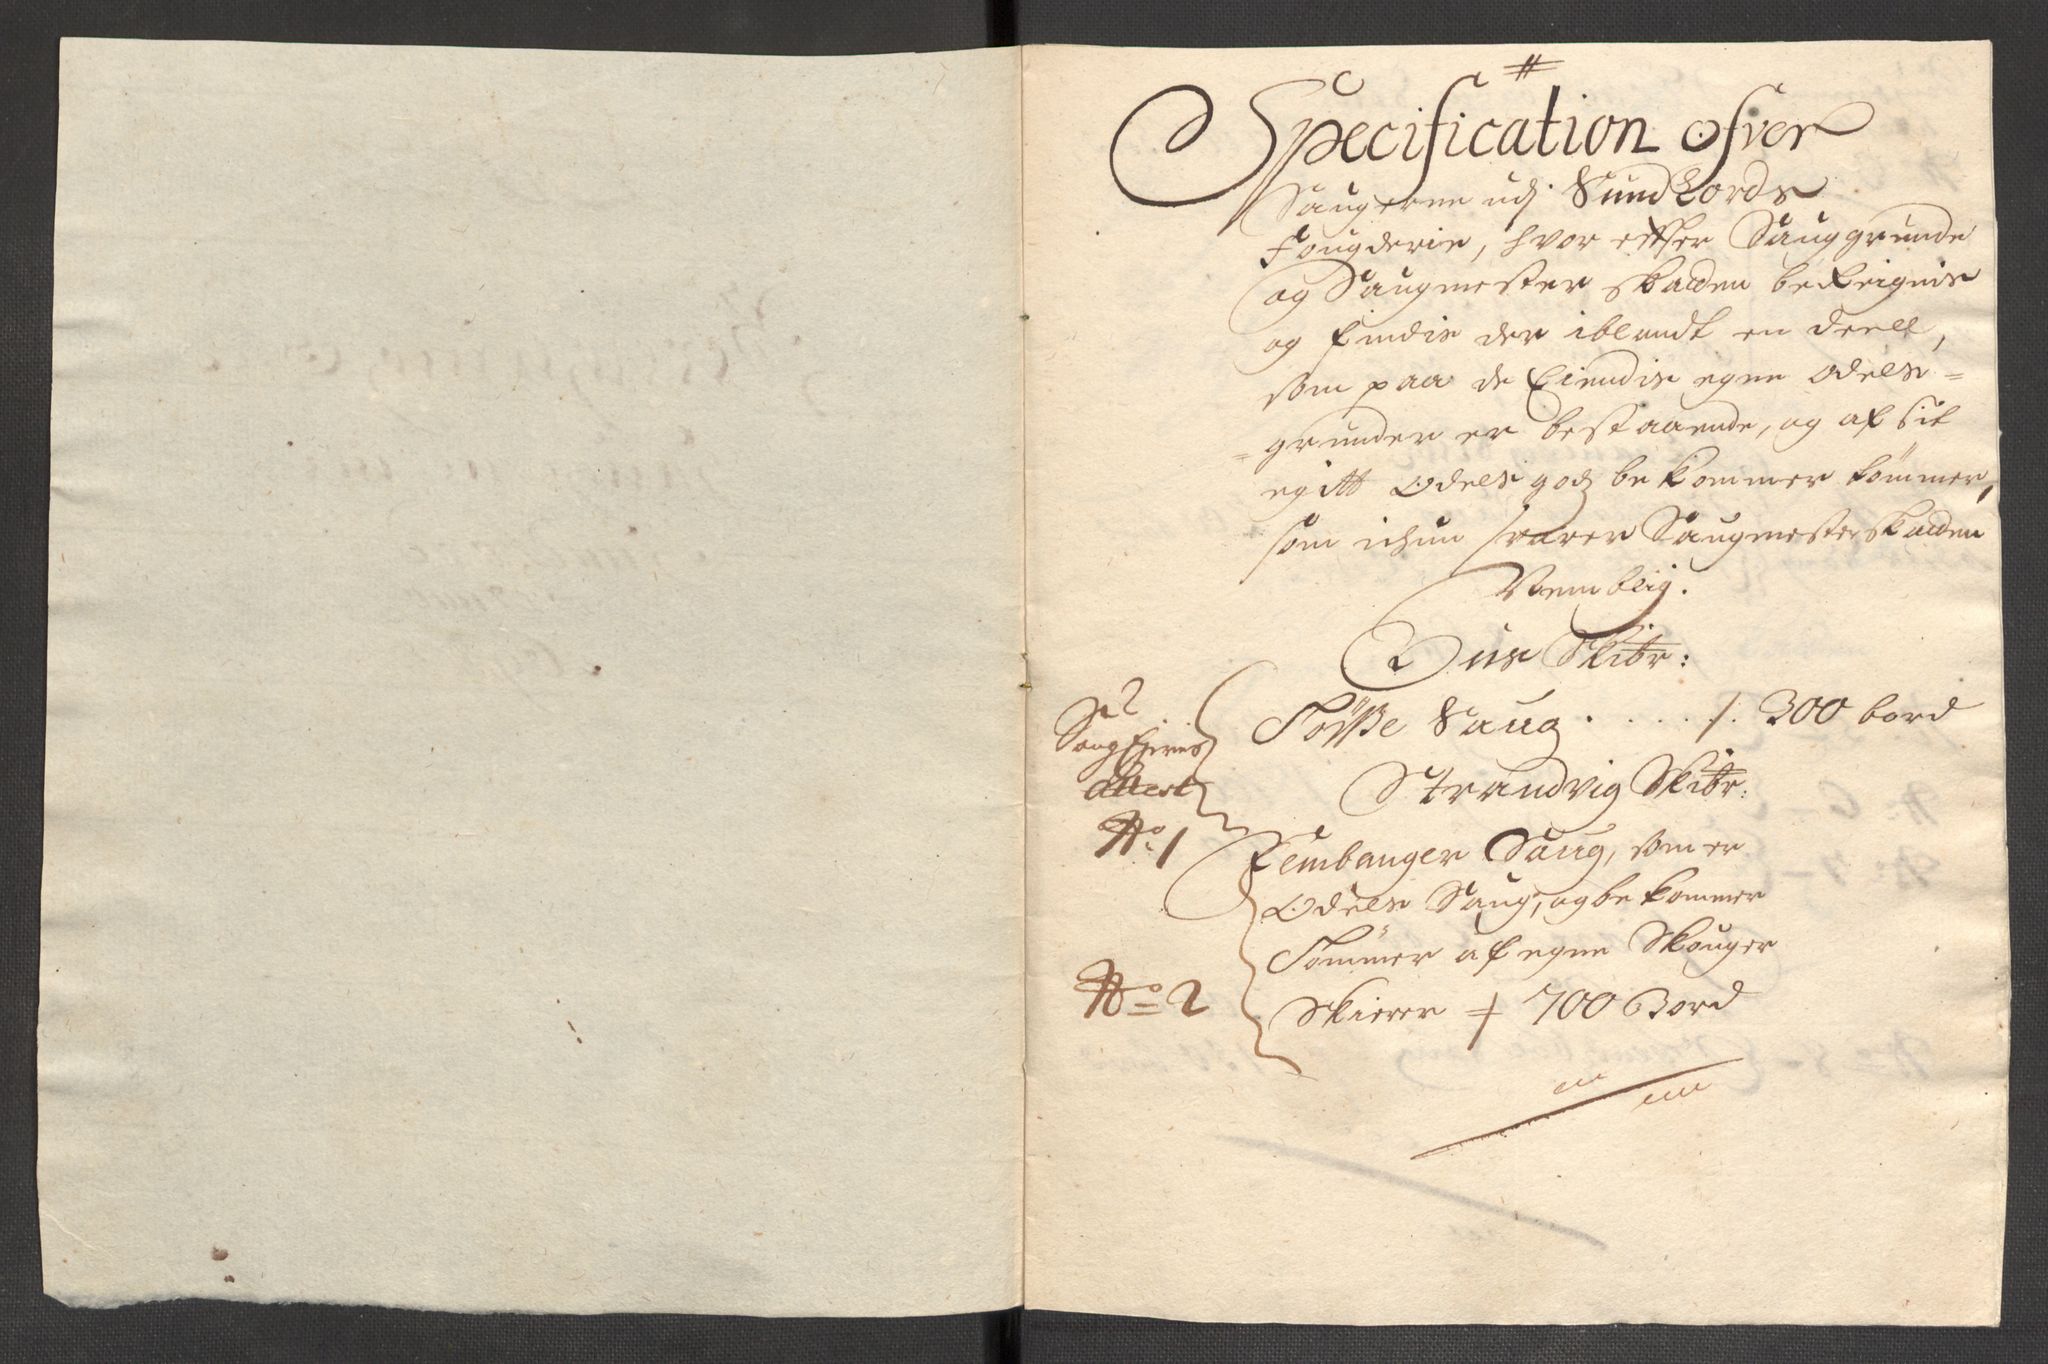 Specification ofver
Saugerne udj Sundhords
Fougderie, hvor efter Sauggrunde
og Saugmester skatten beReignis
og findis der iblandt en deell,
som paa de Eiendis egne odels-
=grunder er bestaaende, og af sit
egitt Odels godz bekommer tømmer,
som ichun svarer Saugmesterskatten
Nemblig.
Ous Skibr:
Saug Ejernis
attest
No 1
Fosse Saug . . . . /. 300 bord
Strandvig Skibr:
Fembanger Saug, som er
Odels Saug, og bekommer
Tømmer af egne Skouger
No 2
Skierer 700 Bord